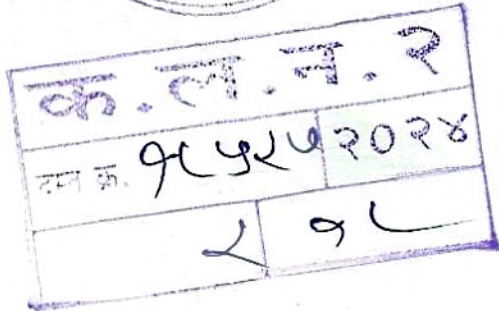 क.ल.न.२
दस्त क्र. १८५२५ २०२४
२ १८